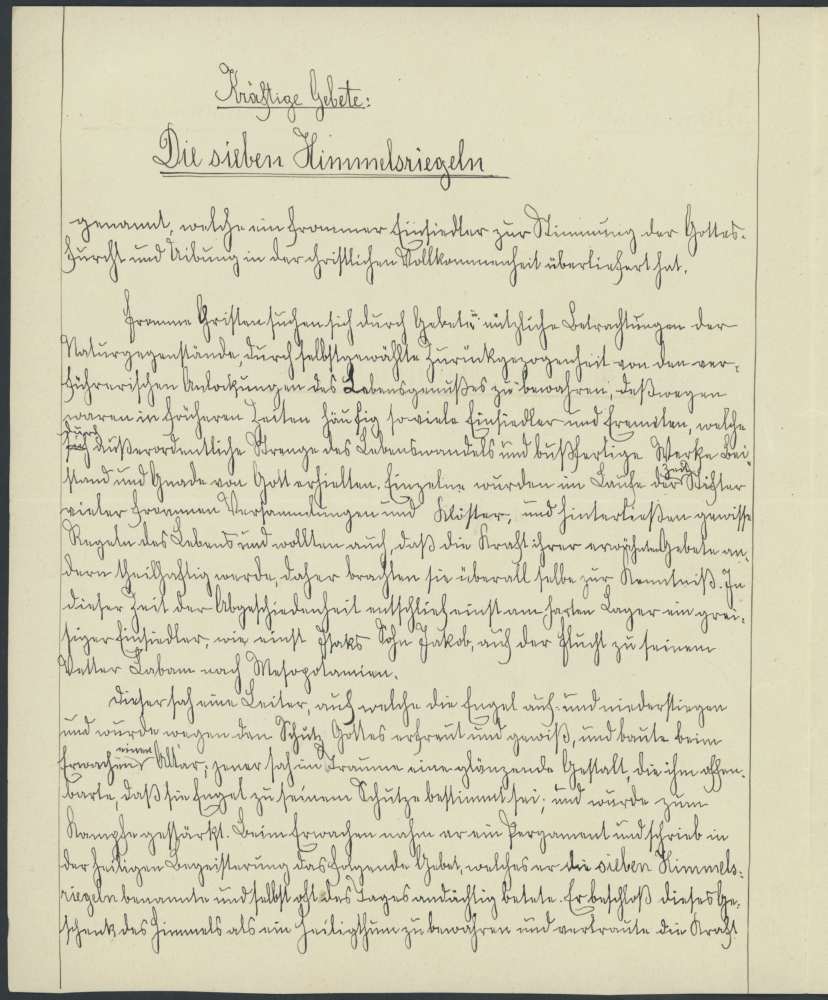 Kräftige Gebete:
Die sieben Himmelsriegeln
genannt, welche ein frommer Einsiedler zur Stimmung der Gottes-
furcht und Uibung in der christlichen Vollkommenheit überliefert hat.
Fromme Christen suchen sich durch Gebete u. nützliche Betrachtungen der
Naturgegenstände, durch selbstgewählte Zurückgezogenheit von den ver-
führerischen Anlockungen des Lebensgenußes zu bewahren; deßwegen
waren in früheren Zeiten häufig so viele Einsiedler und Eremiten, welche
durch außerordentliche Strenge des Lebenswandels und bußfertige Werke Bei-
stand und Gnade von Gott erhielten. Einzelne wurden im Laufe der Zeit Stifter
vieler frommen Versammlungen und Klöster, und hinterließen gewisse
Regeln des Lebens und wollten auch, daß die Kraft ihrer Gebete an-
dern theilhaftig werde, daher brachten sie überall selbe zur Kenntniß. In
dieser Zeit der Abgeschiedenheit entschlief einst am harten Lager ein grei-
siger Einsiedler, wie einst Isaks Sohn Jakob, auf der Flucht zu seinem
Vetter Labam nach Mesopotamien.
Dieser sah eine Leiter, auf welche die Engel auf- und niederstiegen
und wurde wegen den Schutz Gottes erfreut und gewiß, und baute beim
Erwachen einen Altar; jener sah im Traume eine glänzende Gestalt, die ihm offen-
barte, daß sie Engel zu seinem Schutze bestimmt sei; und wurde zum
Kampfe gestärkt. Beim Erwachen nahm er ein Pergament und schrieb in
der heiligen Begeisterung das folgende Gebet, welches er die sieben Himmels-
riegeln benannte und selbst oft des Tages andächtig betete. Er beschloß dieses Ge-
schenk des Himmels als ein Heiligthum zu bewahren und vertraute die Kraft